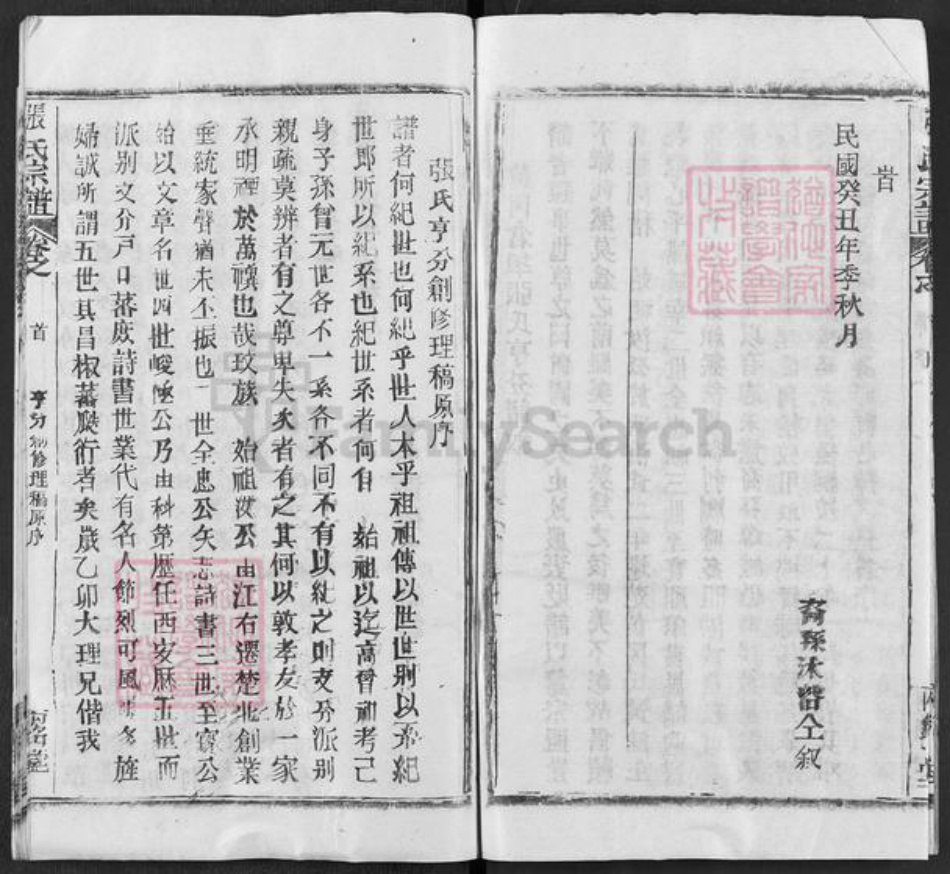 旹
民國癸丑年季秋月
裔孫沐譜仝叙
張氏亨分創修理稿原序
譜者何紀世也何紀乎世人本乎祖祖傳以世世別以系紀
世即所以紀系也紀世系者何自 始祖以迄高曾祖考己
身子孫曾元世各不一系各不同不有以紀之則支分派别
親疏莫辨者有之尊卑失次者有之其何以敦孝友於一家
承明禋於萬禩也哉玟族 始祖漢公由江右遷楚北創業
垂統家聲猶未丕振也 世全忠公矢志詩書三世至寶公
始以文章名世四世峻極公乃由科第歷任西安厤五世而
派别支分戶口蕃庶詩書世業代有名人節烈可風 旌
婦誠所謂五世其昌椒蕃瓞衍者矣歲乙卯大理兄偕我
張氏宗譜 卷之
首
亨分創修理稿原序
堂